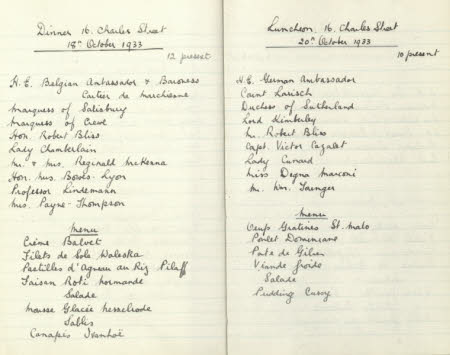 Dinner 16. Charles Street
18th October 1933
12 present
H.E. Belgian Ambassador & Baroness
Cartier de Marchienne
Marquess of Salisbury
Marquess of Crewe
Hon. Robert Bliss
Lady Chamberlain
Mr. & Mrs. Reginald McKenna
Hon. Mrs. Bowes-Lyon
Professor Lindemann
Mrs. Payne-Thompson
Menu
Crème Balvet
Filets de Sole Waleska
Pastilles d'Agneau au Riz Pilaff
Faisan Roti Normande
Salade
Mousse Glacée Nesselrode
Sablés
Canapés Ivanhoë
Luncheon. 16. Charles Street
20th October 1933
10 present
H.E. German Ambassador
Count Larisch
Duchess of Sutherland
Lord Kimberley
Mr. Robert Bliss
Capt. Victor Cazalet
Lady Cunard
Miss Degna Marconi
Mr. Wm.
Menu
Oeufs Gratines St. Malo
Poulet Domenicano
Pate de Gibier
Viande froide
Salade
Pudding